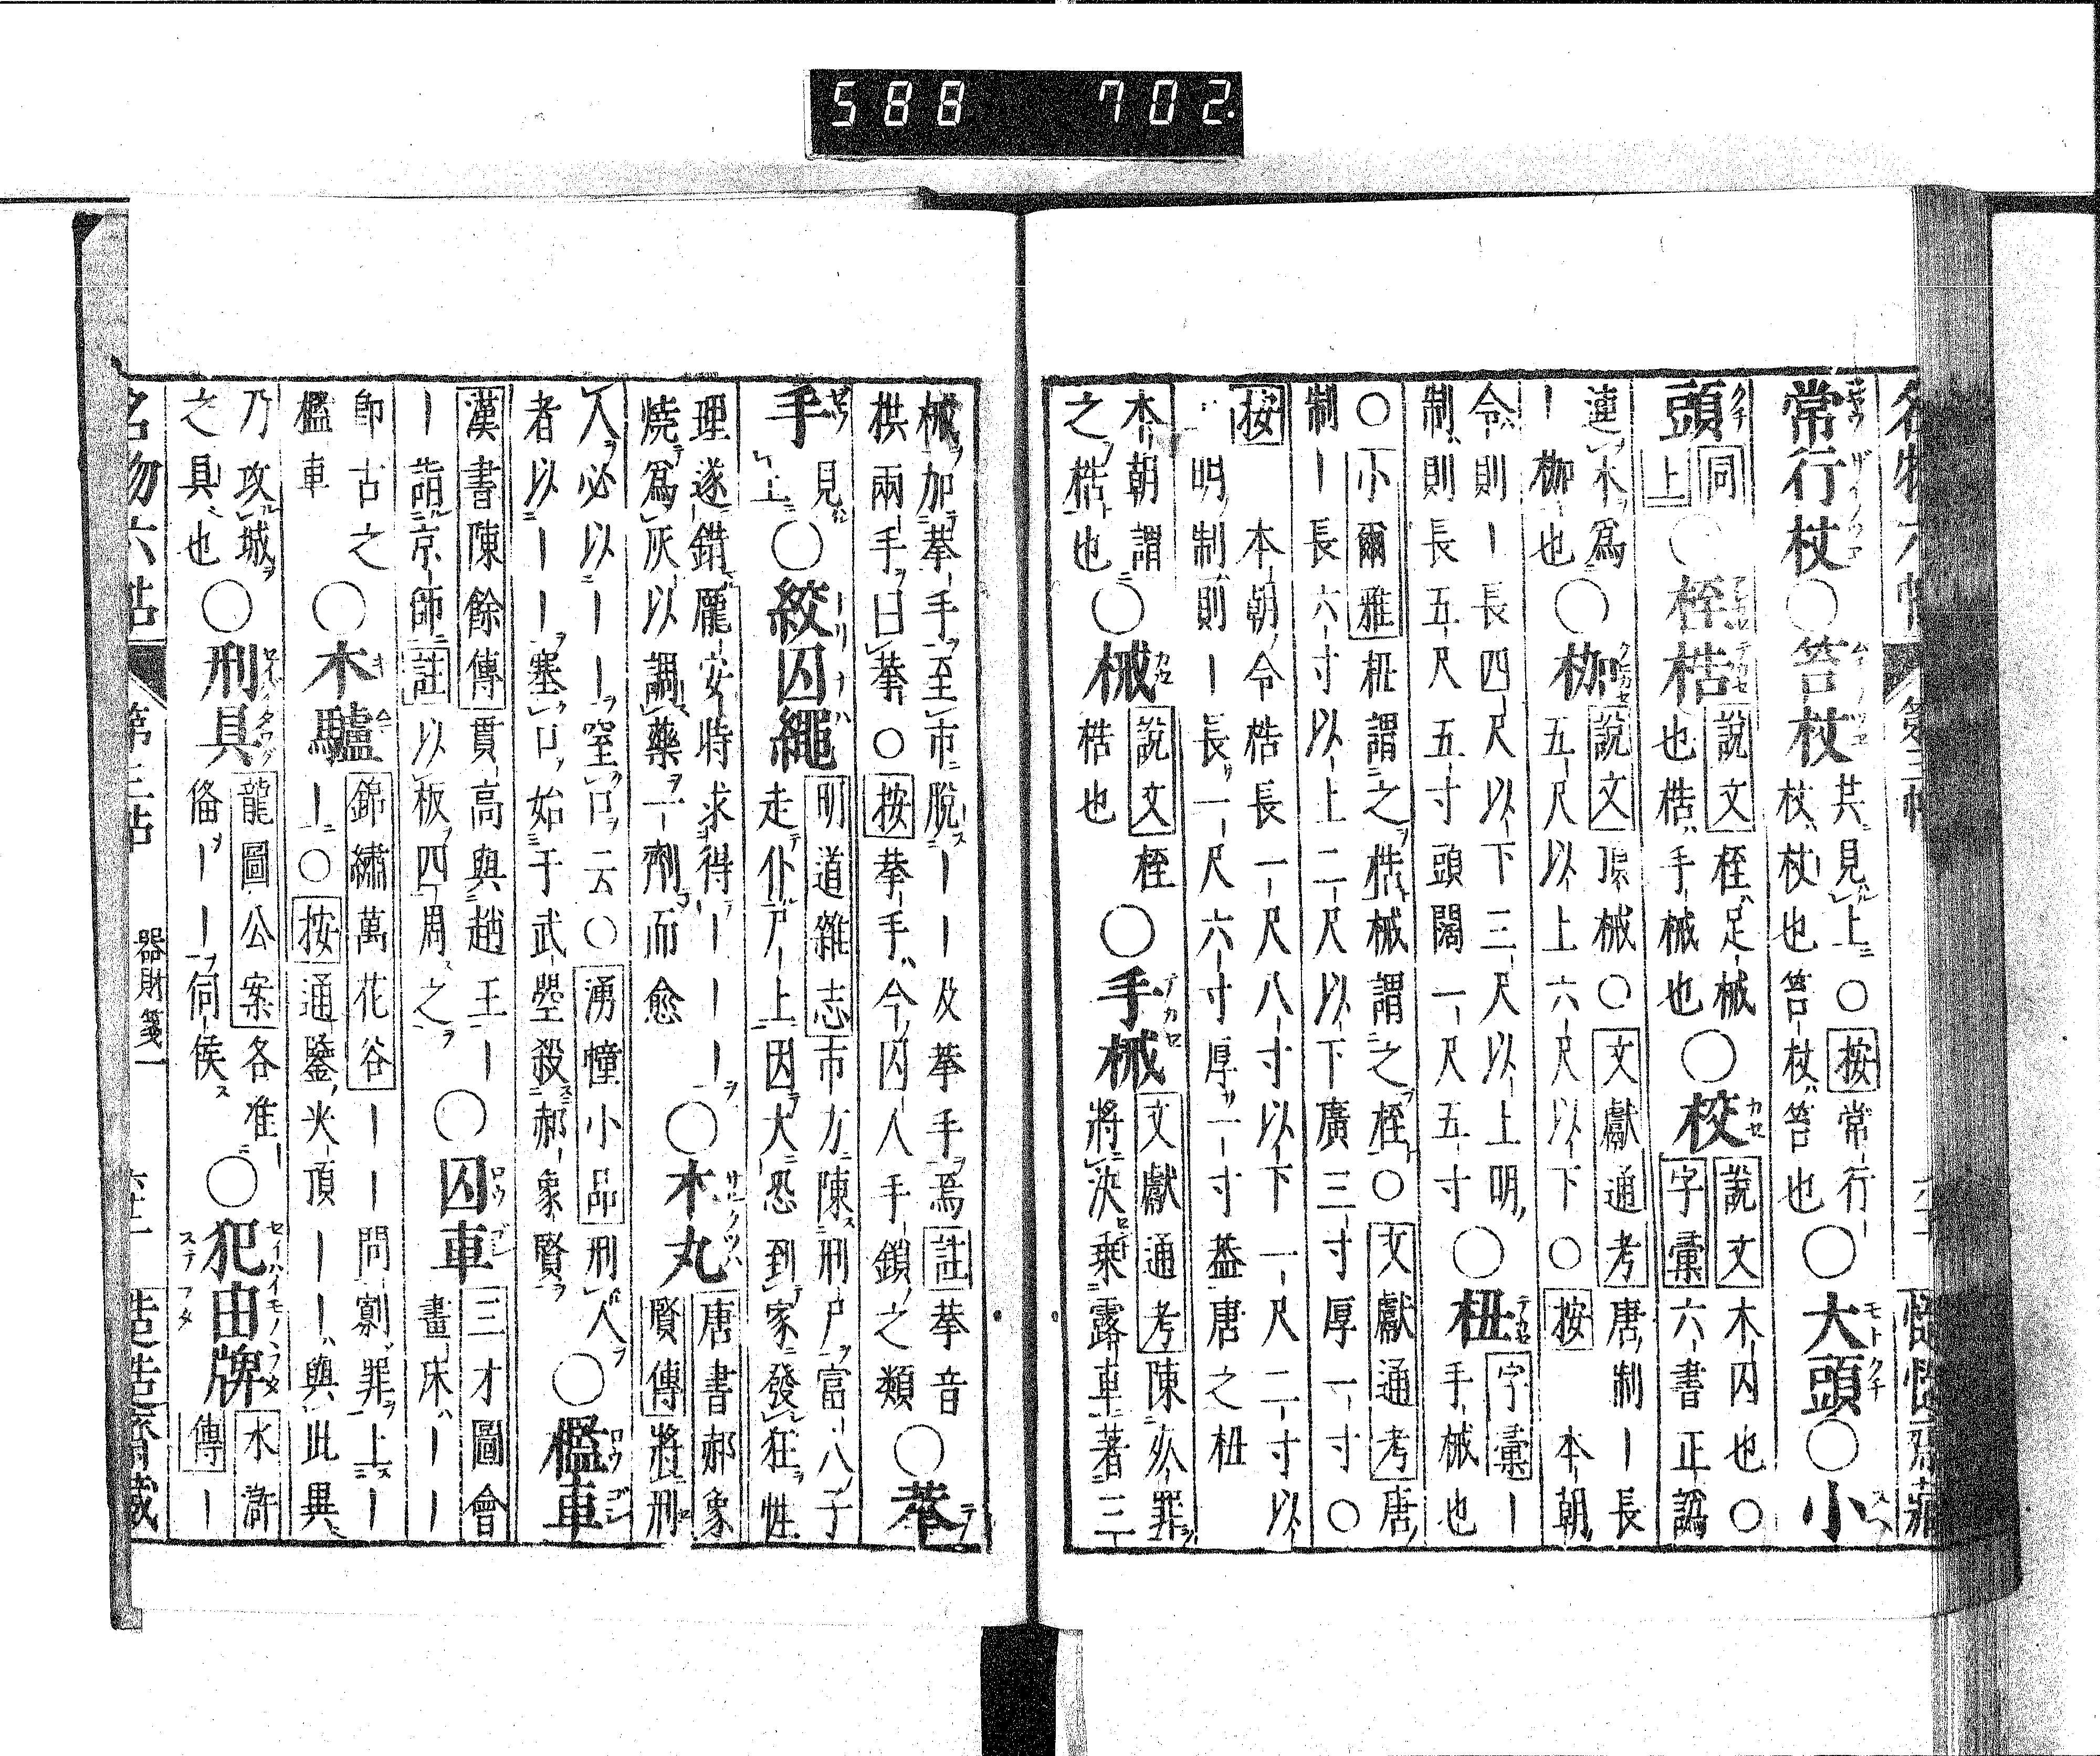 588 702
常行杖○笞杖 共見上○按常行
杖杖也笞杖笞也○大頭○小
頭 同上○桎梏 說文桎足械
也梏手械也○校 說文木囚也○
字彙六書正譌
連木爲
枷也○枷 說文
五尺以上六尺以下○按本朝
令則ー長四尺以下三尺以上明
制則長五尺五寸頭闊一尺五寸○杻 字彙ー
手械也
○小爾雅杻謂之梏械謂之桎○文獻通考唐
制ー長六寸以上二尺以下廣三寸厚一寸○
按 本朝令梏長一尺八寸以下一尺二寸以
明制則ー長一尺六寸厚一寸蓋唐之杻
本朝謂
之梏也○械 說文桎
梏也○手械 文獻通考陳
將決乘露車著三
械加拲手至市脫ーー及拲手焉註拲音
拱兩手曰拲○按拲手今囚人手鎖之類○拲
手 見上○絞囚繩 明道雜志市方陳刑尸富八子
走仆尸上因大恐到家發狂性
理遂錯龐安時求得ーーー
燒爲灰以調藥一劑而愈○木丸 唐書郝象
賢傳將刑
人必以ーー窒口云○湧幢小品刑人
者以ーー塞口始于武曌殺郝象賢○檻車
漢書陳餘傳貫高與趙王ー
ー詣京師註以板四周之○囚車 三才圖會
畫床ーー
卽古之
檻車○木驢 錦繡萬花谷ーー問劇罪上ー
ー○按通鑒火頂ーー與此異
乃攻城
之具也○刑具 龍圖公案各准
俻ーー伺侯○犯由牌 水滸
傳ー
器財箋一